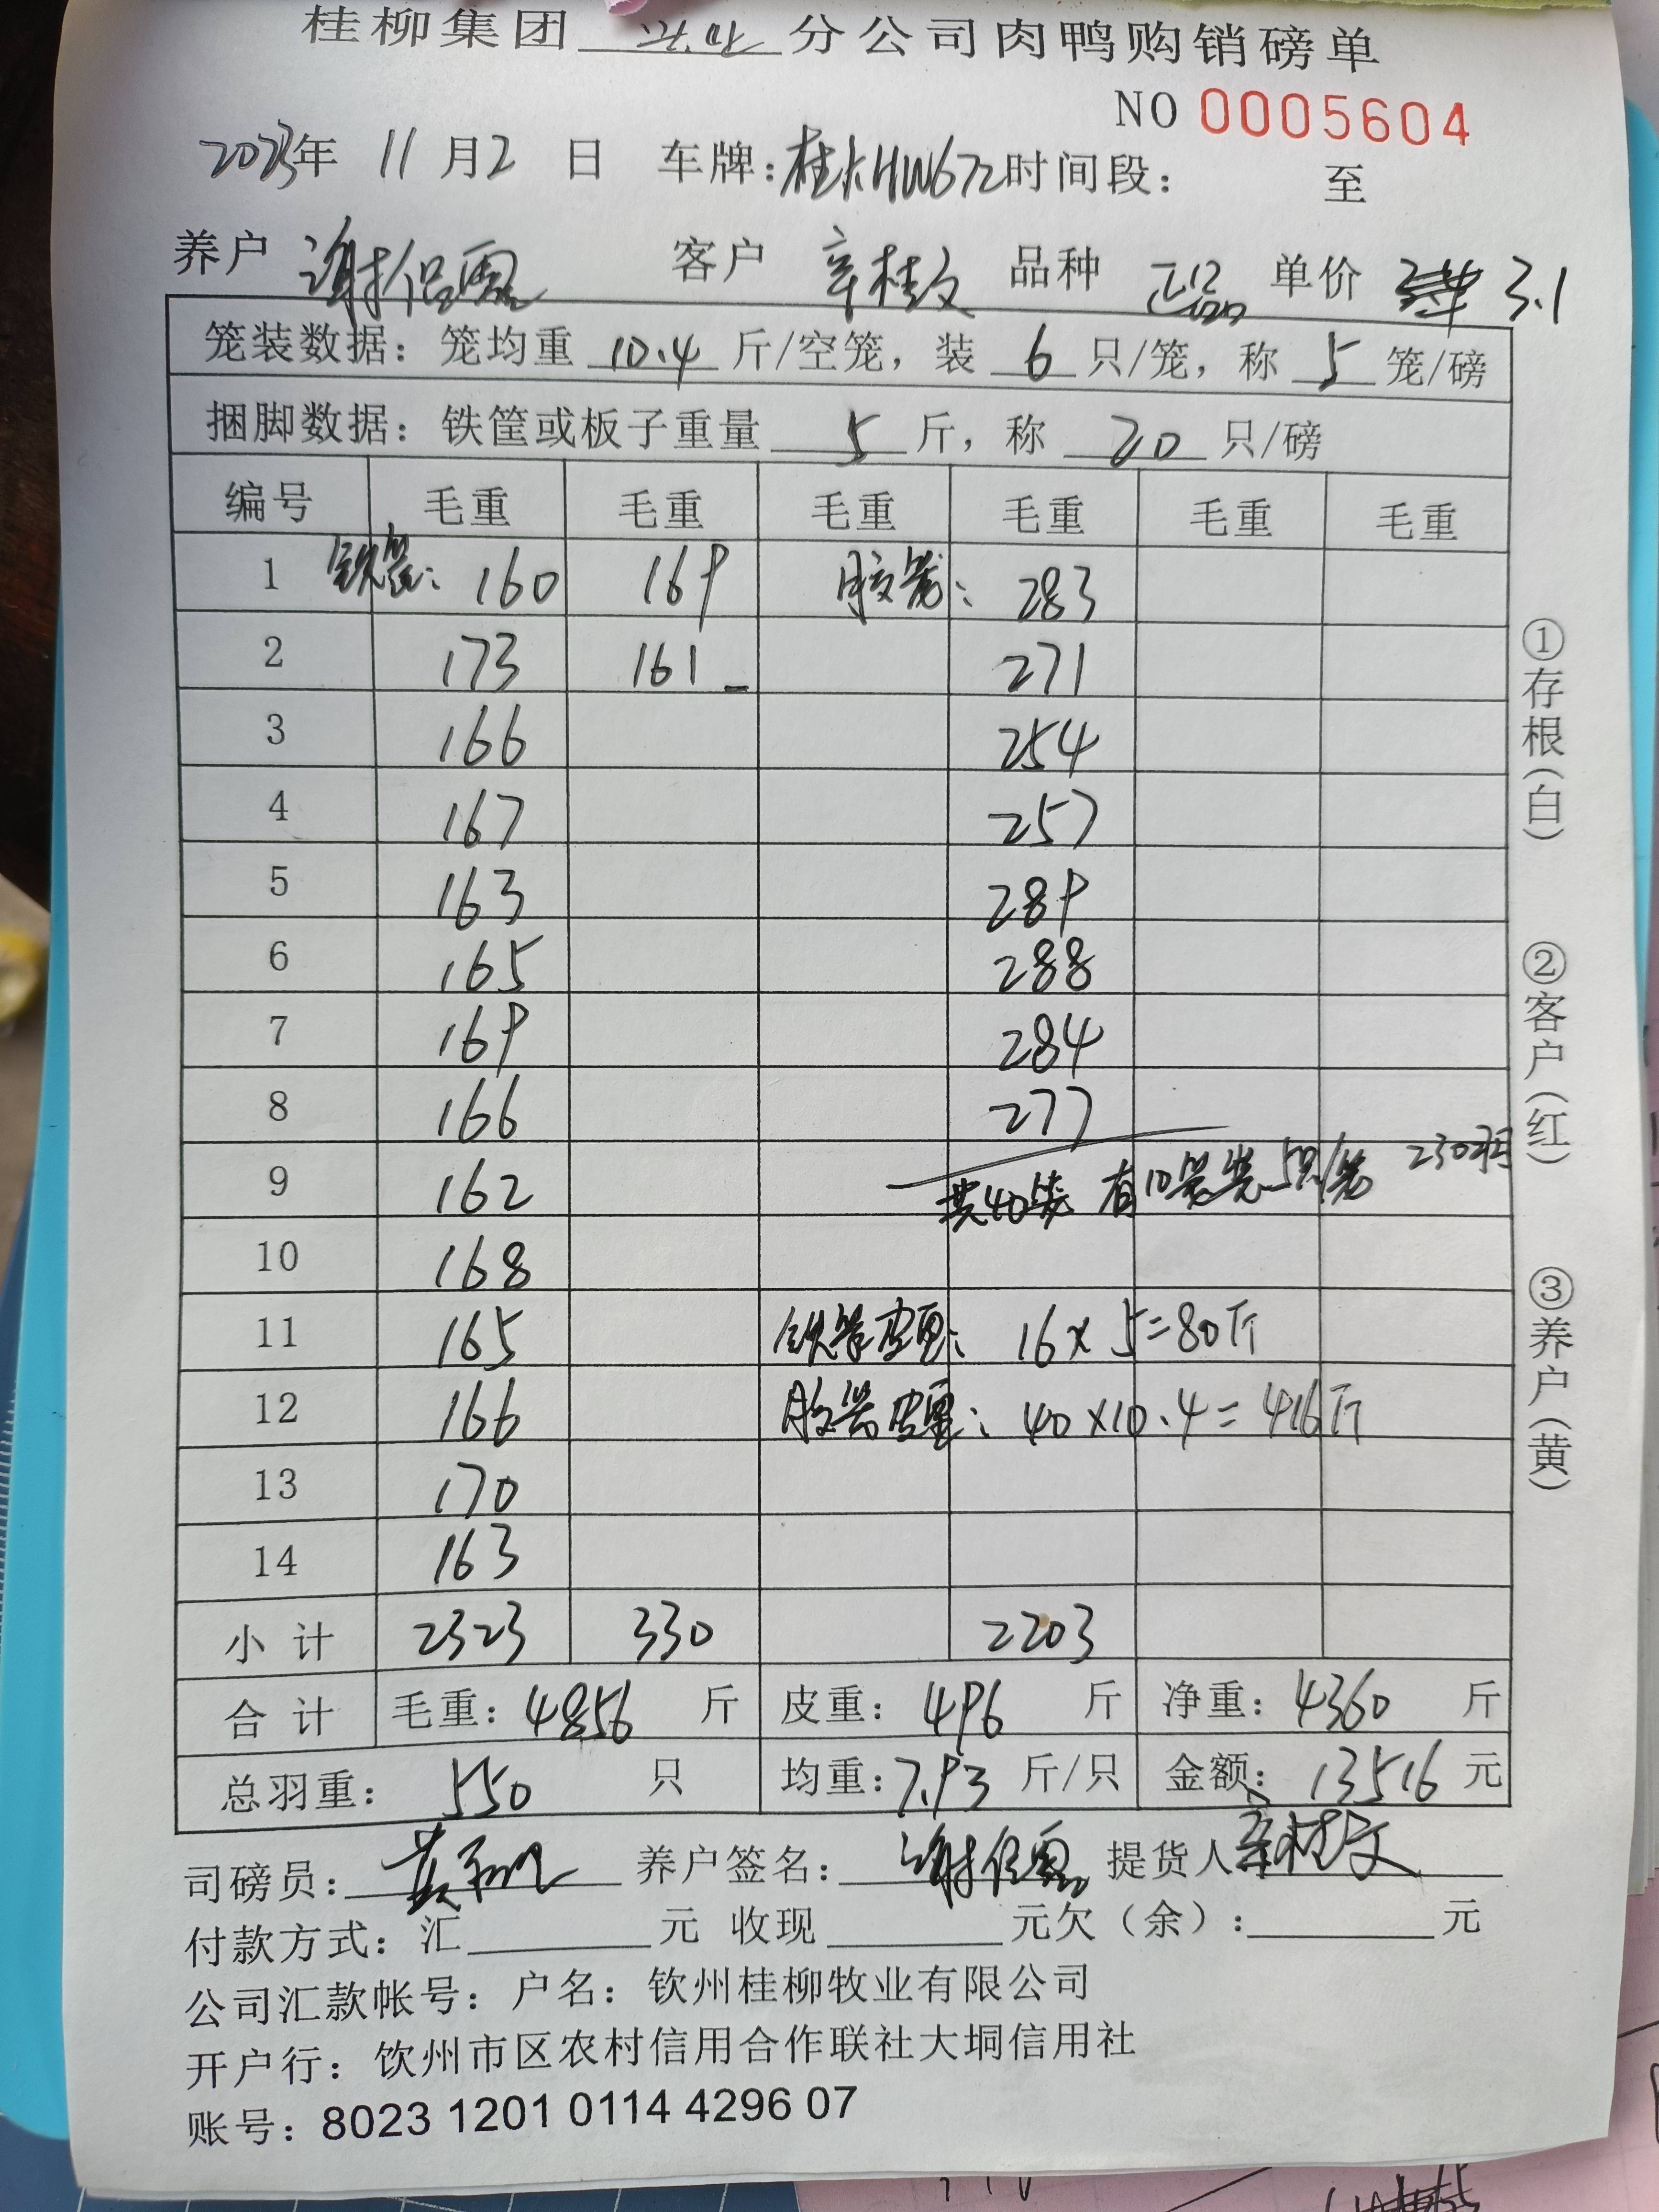 桂柳集团 分公司肉鸭购销磅单
NO 0005604
2023年 11 月 2 日 车牌:桂KHW672 时间段: 至
养户 谢保 客户 辛桂文 品种 正品 单价 3.1
笼装数据: 笼均重 10.4 斤/空笼, 装 6 只/笼, 称 5 笼/磅
捆脚数据: 铁筐或板子重量 5 斤, 称 20 只/磅
编号 毛重 毛重 毛重 毛重 毛重 毛重
1 铁筐: 160 169 胶笼: 283
2 173 161 271
3 166 254
4 167 257
5 163 289
6 165 288
7 169 284
8 166 277
9 162 共40笼 有10笼装5只/笼 230只
10 168
11 165 铁筐皮重: 16×5=80斤
12 166 胶笼皮重: 40×10.4=416斤
13 170
14 163
小 计 2323 330 2203
合 计 毛重: 4856 斤 皮重: 496 斤 净重: 4360 斤
总羽重: 550 只 均重: 7.93 斤/只 金额: 13516 元
司磅员: 养户签名: 谢保 提货人 辛桂文
付款方式: 汇 元 收现 元欠(余): 元
公司汇款帐号: 户名: 钦州桂柳牧业有限公司
开户行: 钦州市区农村信用合作联社大垌信用社
账号: 8023 1201 0114 4296 07
①存根(白)
②客户(红)
③养户(黄)